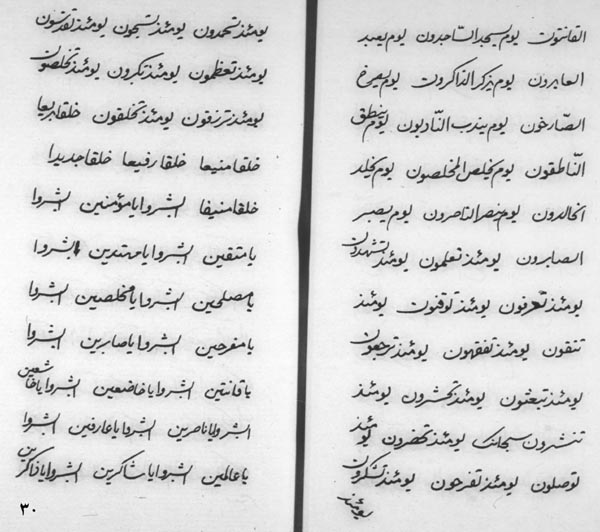 القانتون يوم يسجد الساجدون يوم يعبد
العابدون يوم يذكر الذاكرون يوم يصرخ
الصارخون يوم يندب النادبون يوم ينطق
الناطقون يوم يخلص المخلصون يوم يخلد
الخالدون يوم ينصر الناصرون يوم يصبر
الصابرون يومئذ تعلمون يومئذ تشهدون
يومئذ تعرفون يومئذ توقنون يومئذ
تتقون يومئذ تفقهون يومئذ ترجعون
يومئذ تبعثون يومئذ تحشرون يومئذ
تنشرون سبحانك يومئذ تحضرون يومئذ
توصلون يومئذ تفرحون يومئذ تشكرون
يومئذ
يومئذ تحمدون يومئذ تسبحون يومئذ تقدسون
يومئذ تعظمون يومئذ تكبرون يومئذ تخلصون
يومئذ ترزقون يومئذ تخلقون خلقا بديعا
خلقا منيعا خلقا رفيعا خلقا جديدا
خلقا منيفا ابشروا يا مؤمنين ابشروا
يا متقين ابشروا يا مهتدين ابشروا
يا مصلحين ابشروا يا مخلصين ابشروا
يا مفرحين ابشروا يا صابرين ابشروا
يا قانتين ابشروا يا خاضعين ابشروا يا خاشعين
ابشروا يا ناصرين ابشروا يا عارفين ابشروا
يا عالمين ابشروا يا شاكرين ابشروا يا ذاكرين
٣٠